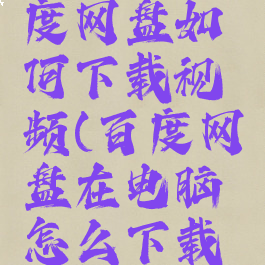 度网盘如
何下载视
频(百度网
盘在电脑
怎么下载